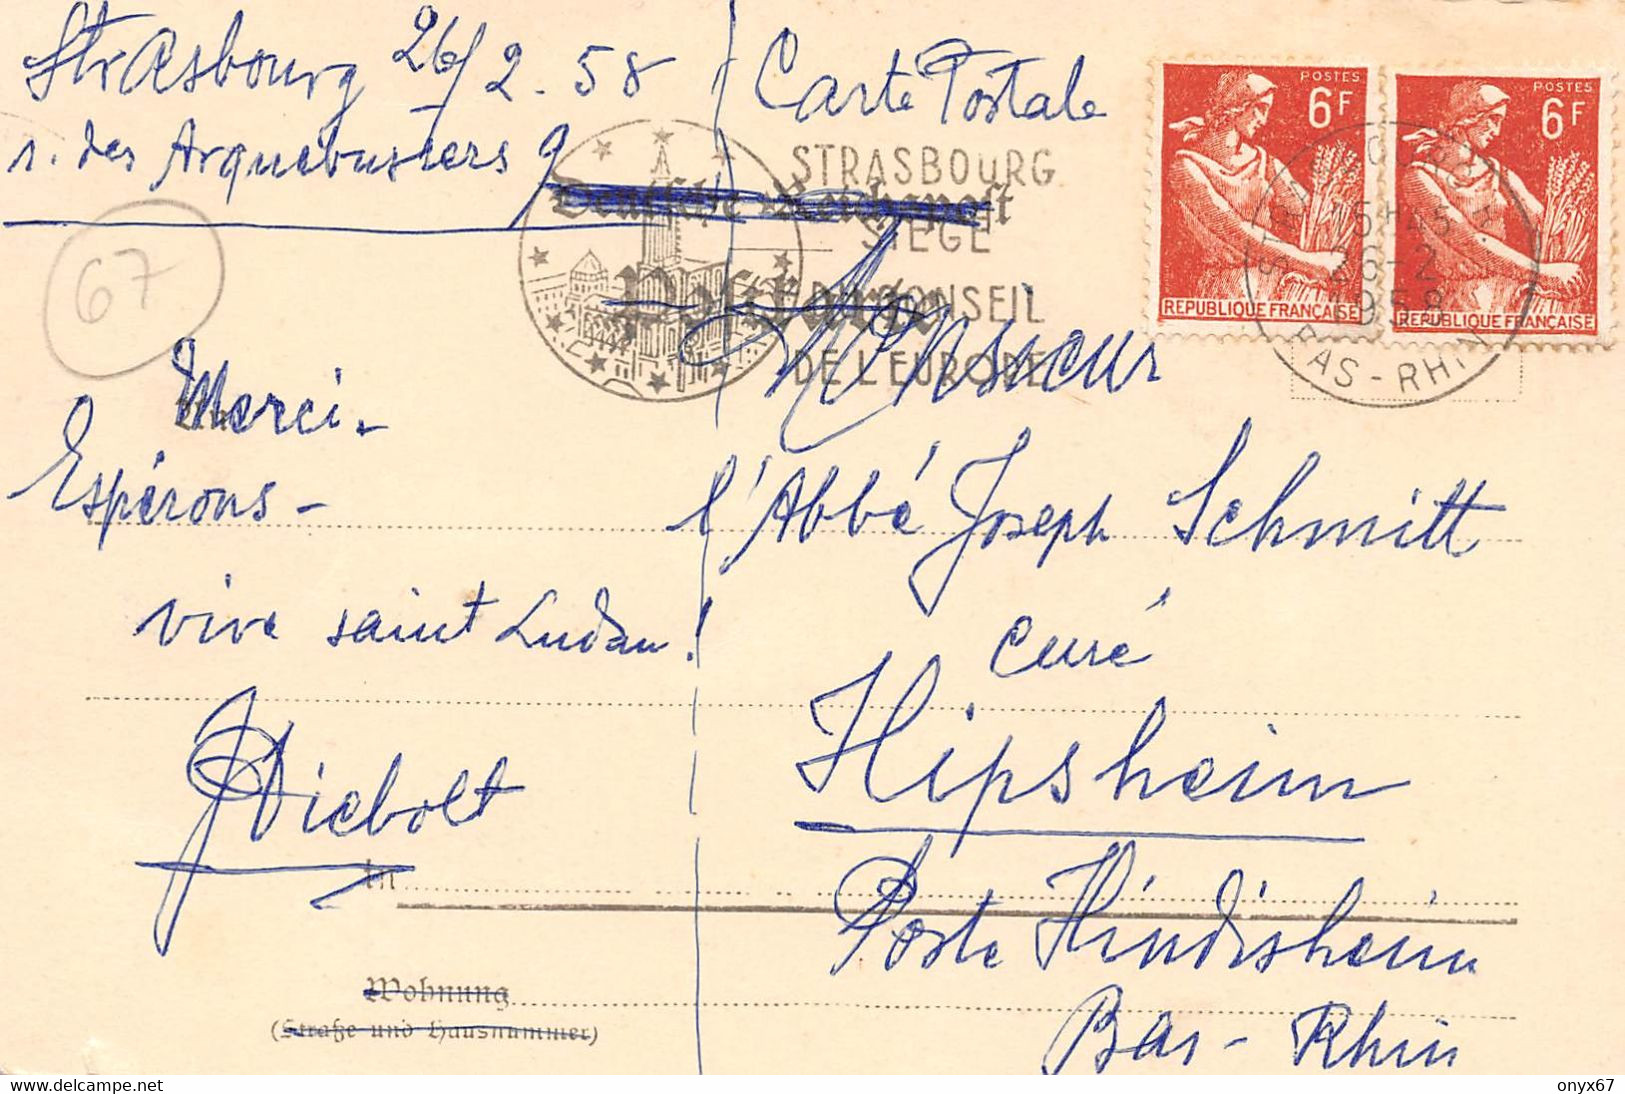 Strasbourg 26/2. 58
r. des Arquebusiers 9
67
Merci.
Espérons -
vive saint Ludan!
J Diebolt
In
Wohnung
(Straße und Hausnummer)
Carte Postale
Deutsche Reichspost
Postkarte
STRASBOURG
SIÈGE
DU CONSEIL
DE L'EUROPE
POSTES
6F
REPUBLIQUE FRANÇAISE
POSTES
6F
REPUBLIQUE FRANÇAISE
15H45
26-2
1958
BAS-RHIN
Monsieur
l'Abbé Joseph Schmitt
curé
Hipsheim
Poste Hindisheim
Bas-Rhin
www.delcampe.net
onyx67